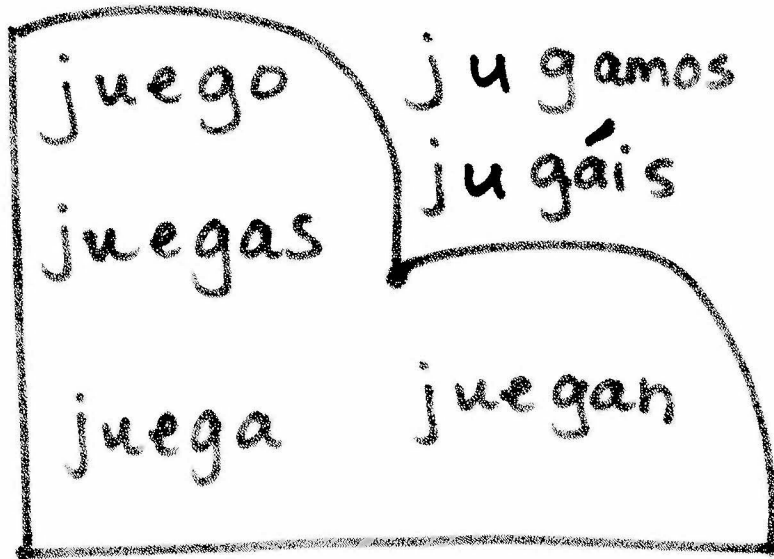 juego
juegas
juega
jugamos
jugáis
juegan